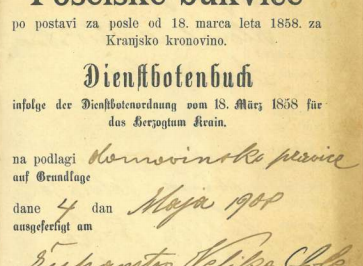 Poselske bukvice
po postavi za posle od 18. marca leta 1858. za
Kranjsko kronovino.
Dienstbotenbuch
infolge der Dienstbotenordnung vom 18. März 1858 für
das Herzogtum Krain.
na podlagi domovinske pravice
auf Grundlage
dane 4 dan Maja 1908
ausgefertigt am
Županstvo Velike